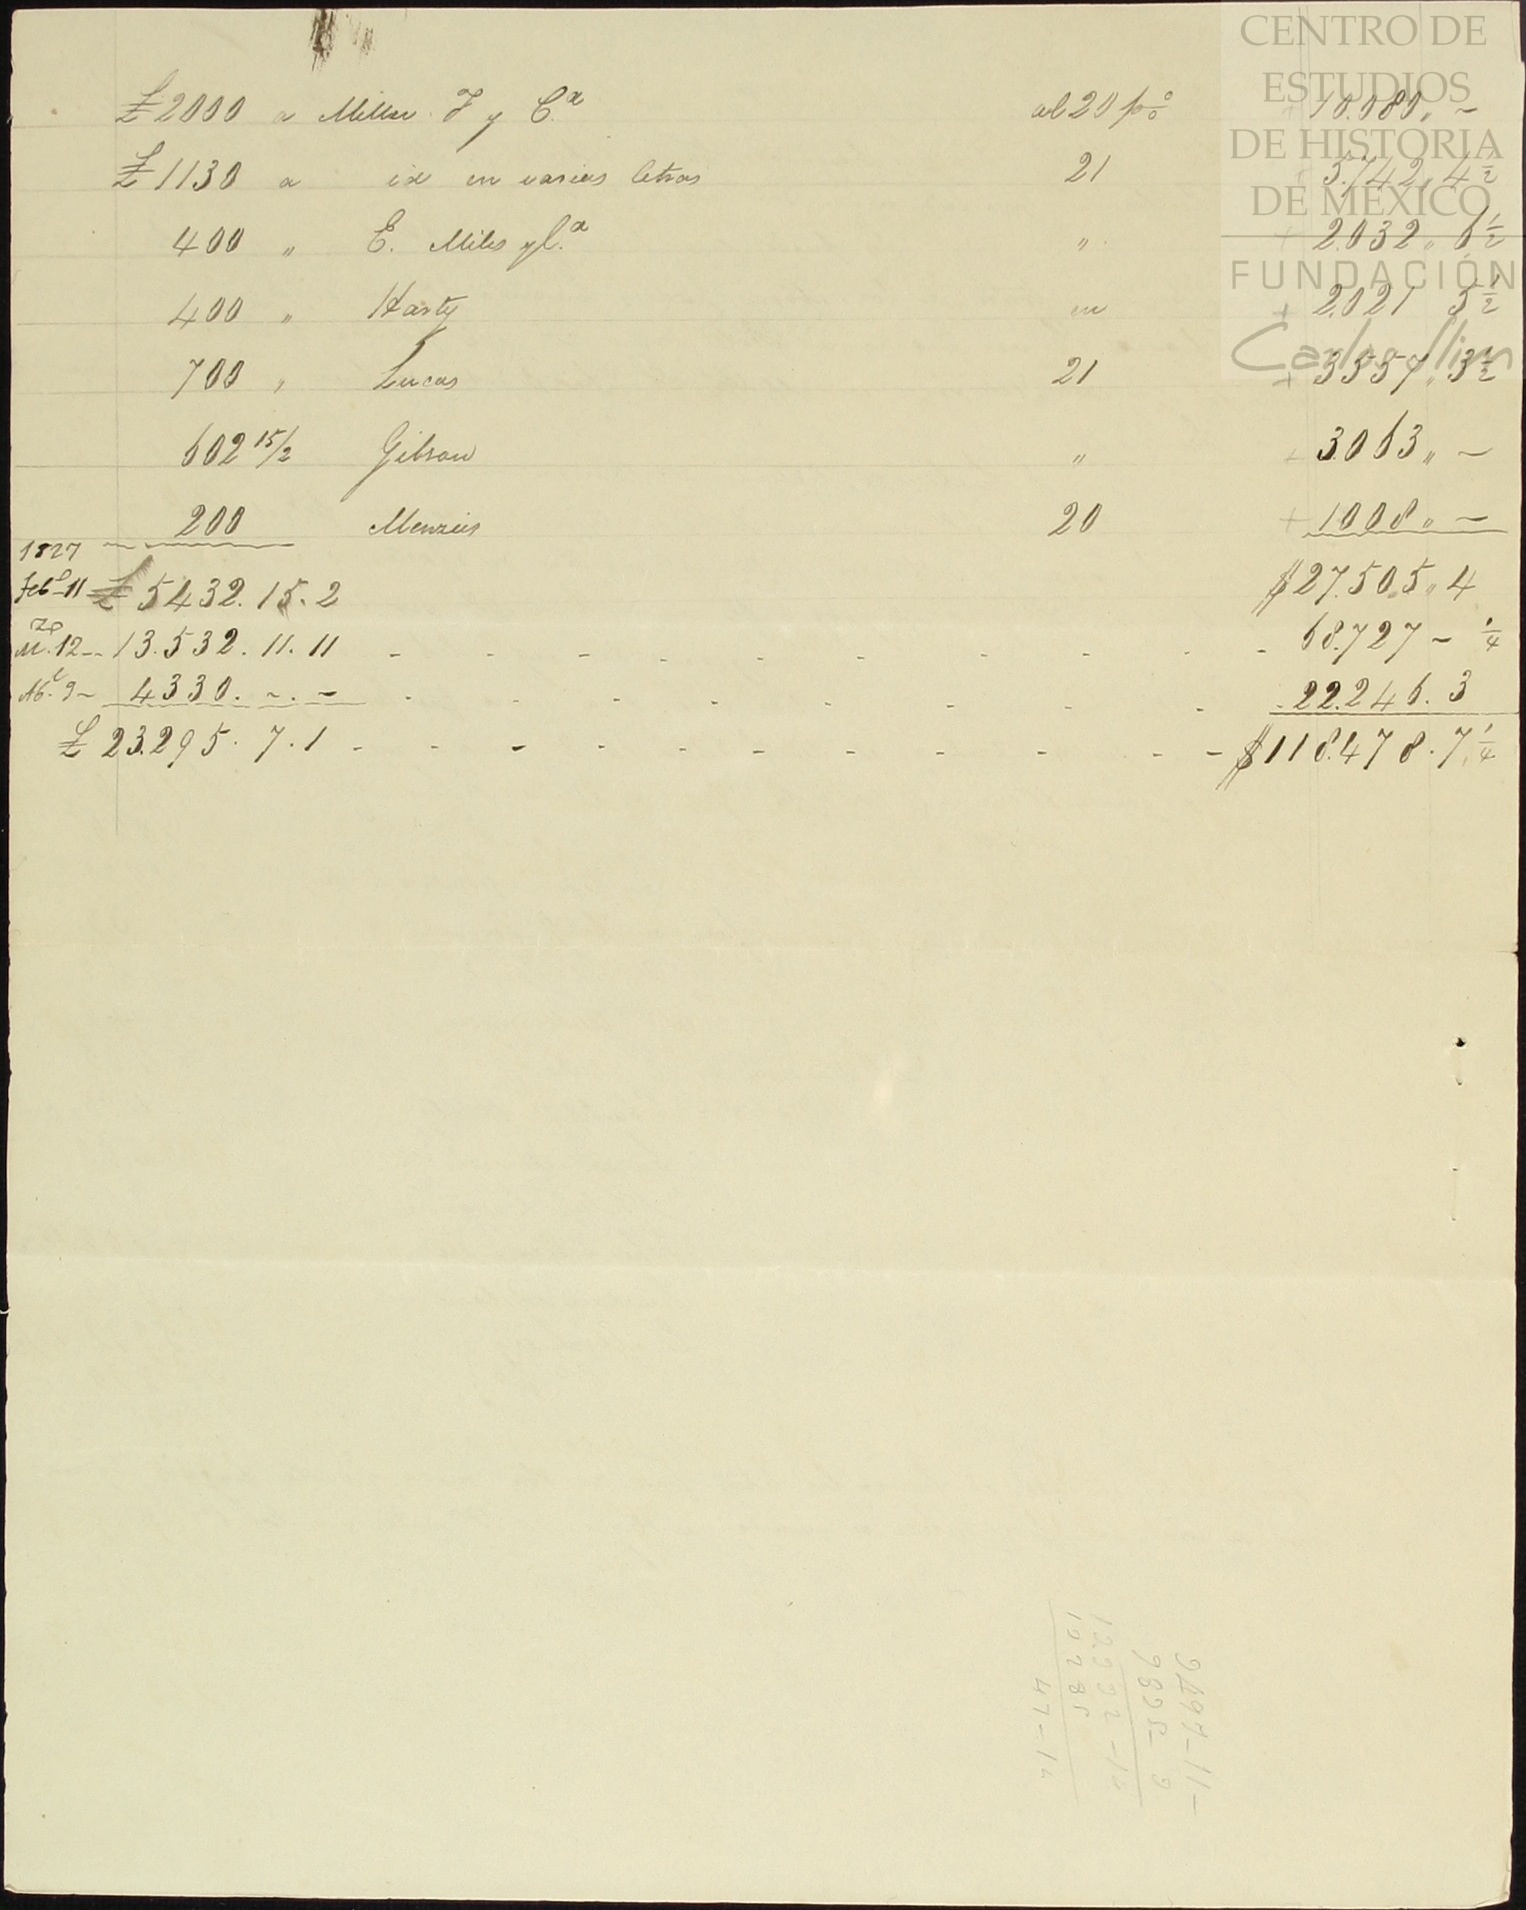 CENTRO DE
ESTUDIOS
DE HISTORIA
DE MÉXICO
FUNDACIÓN
Carlos Slim
£ 2000 a Miller F y C.ª al 20 p% 10.080,, ~
£ 1130 a id en varias letras 21 5.742,, 4 1/2
400 " E. Miles y C.ª " 2.032,, 6 1/2
400 " Hasty + 2.021 5 1/2
700 " Lucas 21 + 3357,, 3 1/2
602 15/2 Gibson " + 3.063,, ~
200 Menzies 20 + 1008,, ~
1827
Feb.º 11 £ 5432. 15. 2 $ 27.505,, 4
M.zo 12 -- 13.532. 11. 11 - - - - - - - - - - 68.727 ~ 1/4
Ab.l 9 ~ 4330. ~ . ~ - - - - - - - - 22.246. 3
£ 23.295. 7. 1 - - - - - - - - - - - $ 118.478. 7 1/4